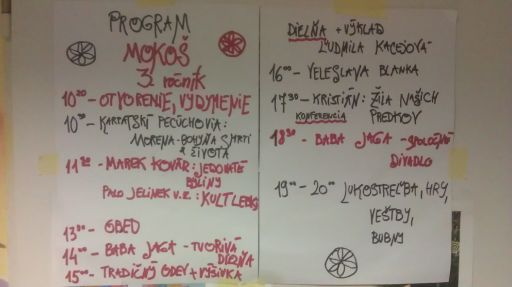 PROGRAM
MOKOŠ
3. ročník
10²⁰ - OTVORENIE, VYDYMENIE
10³⁰ - KARPATSKÍ PECÚCHOVIA:
MORENA - BOHYŇA SMRTI
A ŽIVOTA
11²⁰ - MAREK KOVÁR: JEDOVATÉ
BYLINY
PALO JELINEK V.R.: KULT LEBKY
13⁰⁰ - OBED
14⁰⁰ - BABA JAGA - TVORIVÁ
DIELŇA
15⁰⁰ - TRADIČNÝ ODEV + VÝŠIVKA
DIELŇA + VÝKLAD
ĽUDMILA KACEJOVÁ
16⁰⁰ - VELESLAVA BLANKA
17³⁰ - KRISTIÁN: ŽILA NAŠICH
KONFERENCIA PREDKOV
18³⁰ - BABA JAGA - SPOLOČNÉ
DIVADLO
19⁰⁰ - 20⁰⁰ LUKOSTREĽBA, HRY,
VEŠTBY,
BUBNY